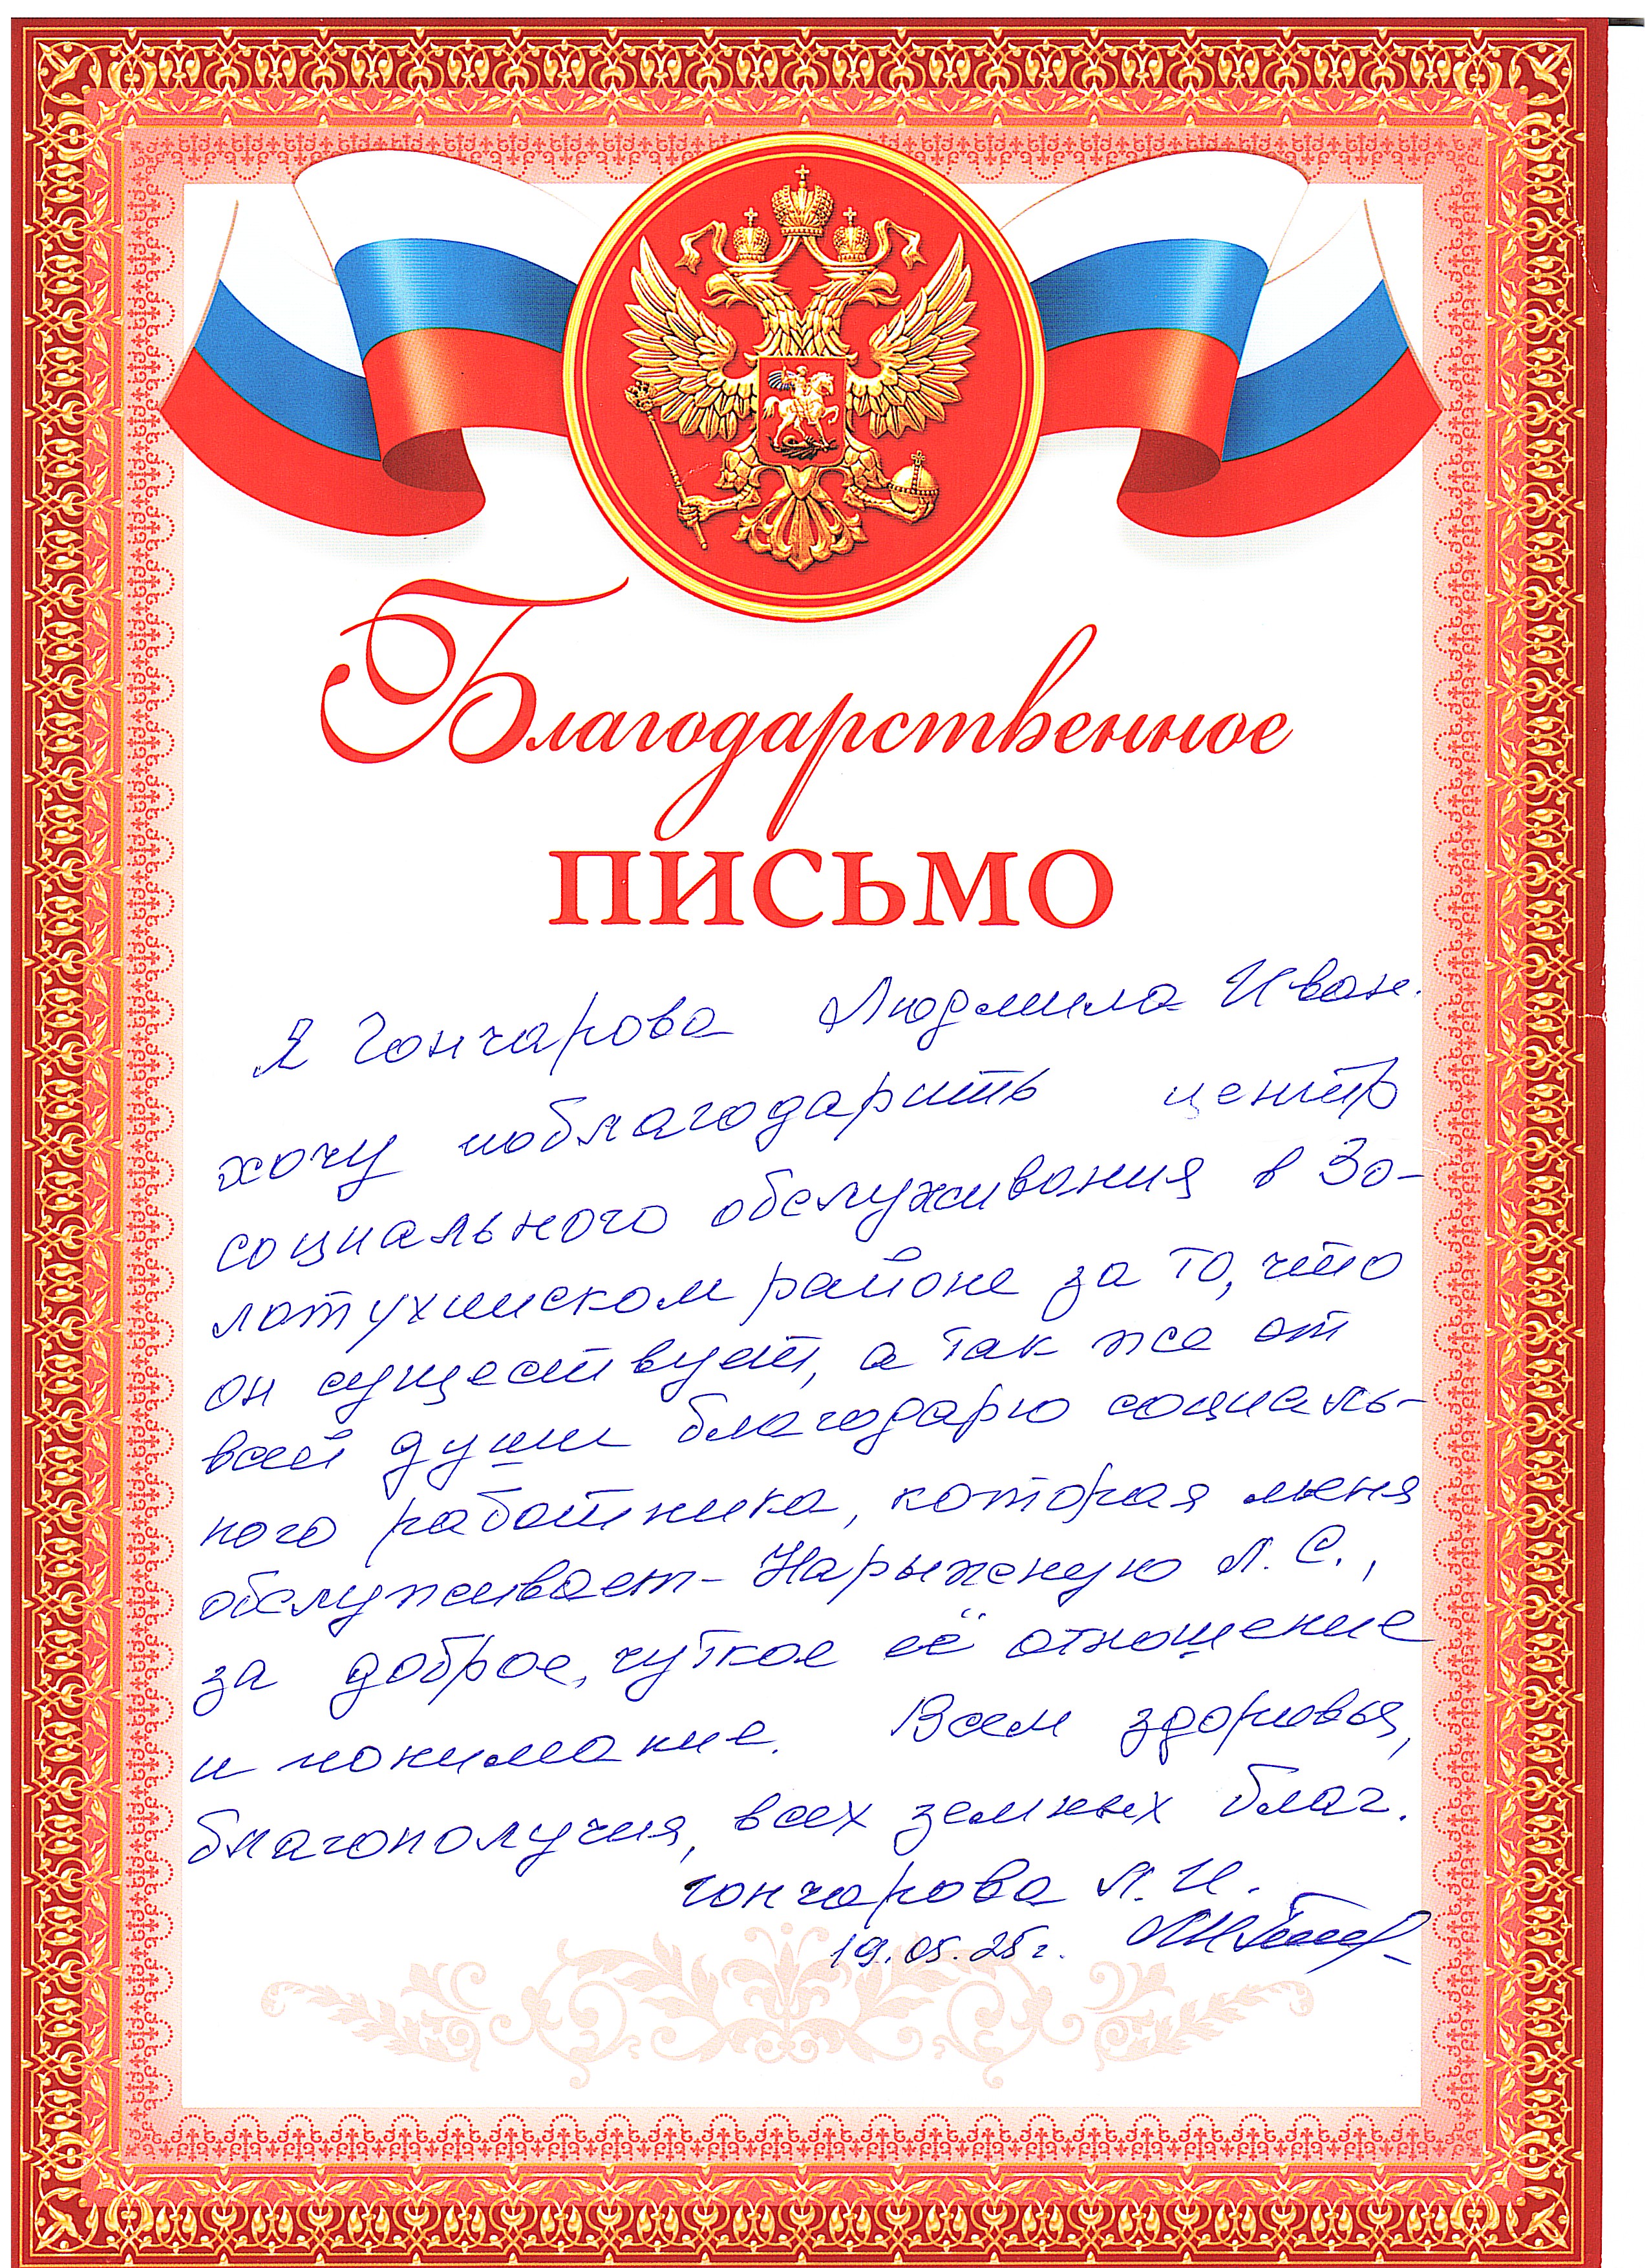 Благодарственное
ПИСЬМО
Я Гончарова Людмила Иван.
хочу поблагодарить центр
социального обслуживания в Зо-
лотухинском районе за то, что
он существует, а так же от
всей души благодарю социаль-
ного работника, которая меня
обслуживает - Нарыжную Л. С.,
за доброе, чуткое её отношение
и понимание. Всем здоровья,
благополучия, всех земных благ.
Гончарова Л. И.
19.05.25г.